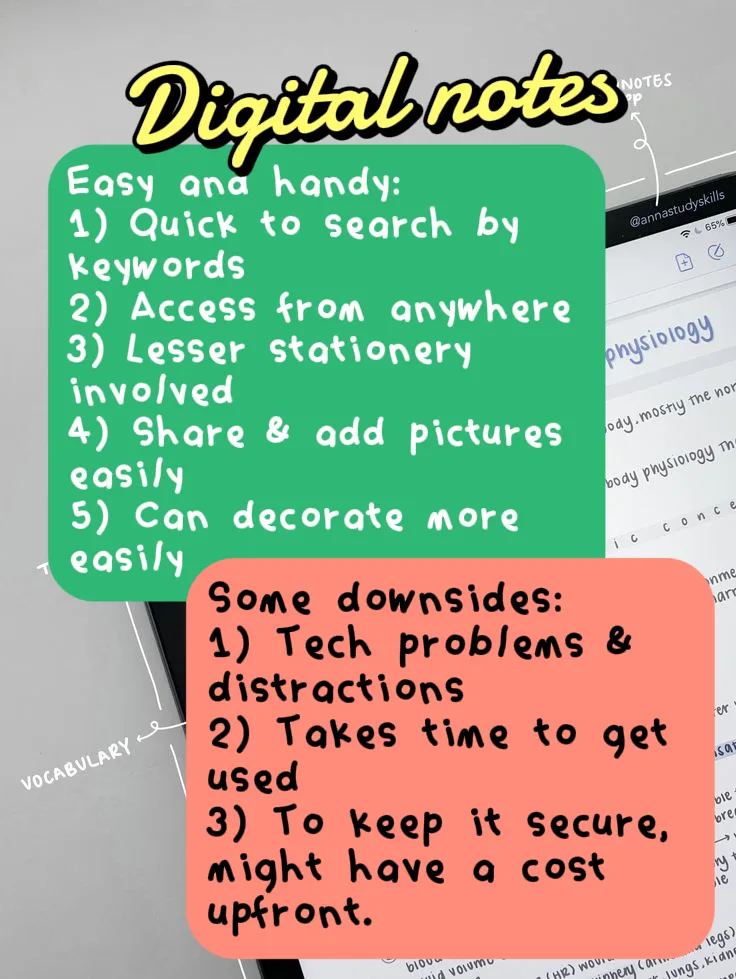 Digital notes
NOTES
@annastudyskills
65%
Easy and handy:
1) Quick to search by
keywords
2) Access from anywhere
3) Lesser stationery
involved
4) Share & add pictures
easily
5) Can decorate more
easily
physiology
body, mostly the nor
body physiology
Some downsides:
1) Tech problems &
distractions
2) Takes time to get
used
3) To keep it secure,
might have a cost
upfront.
VOCABULARY
volume
(HR)